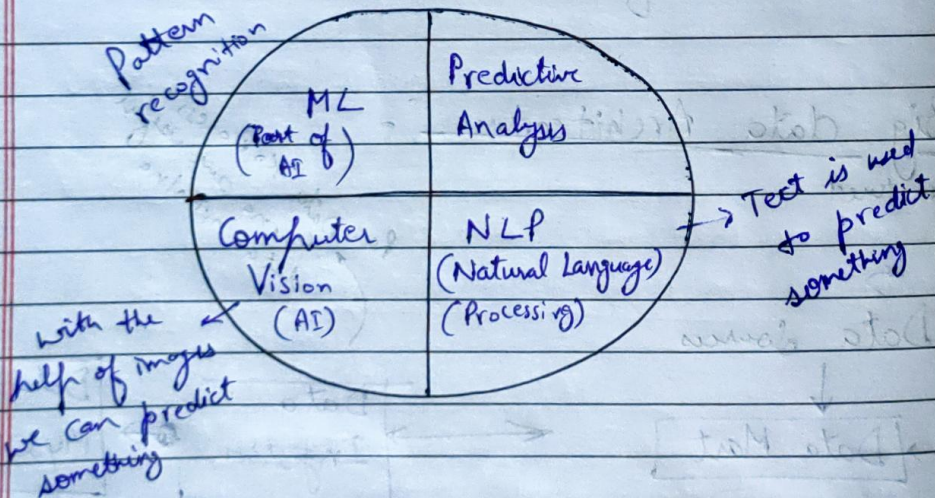 Pattern
recognition
ML
(Part of
AI)
Predictive
Analysis
Computer
Vision
(AI)
NLP
(Natural Language)
(Processing)
→ Text is used
to predict
something
with the
help of images
we can predict
something
Big data Archit
Data Sources
Data
Data Mart